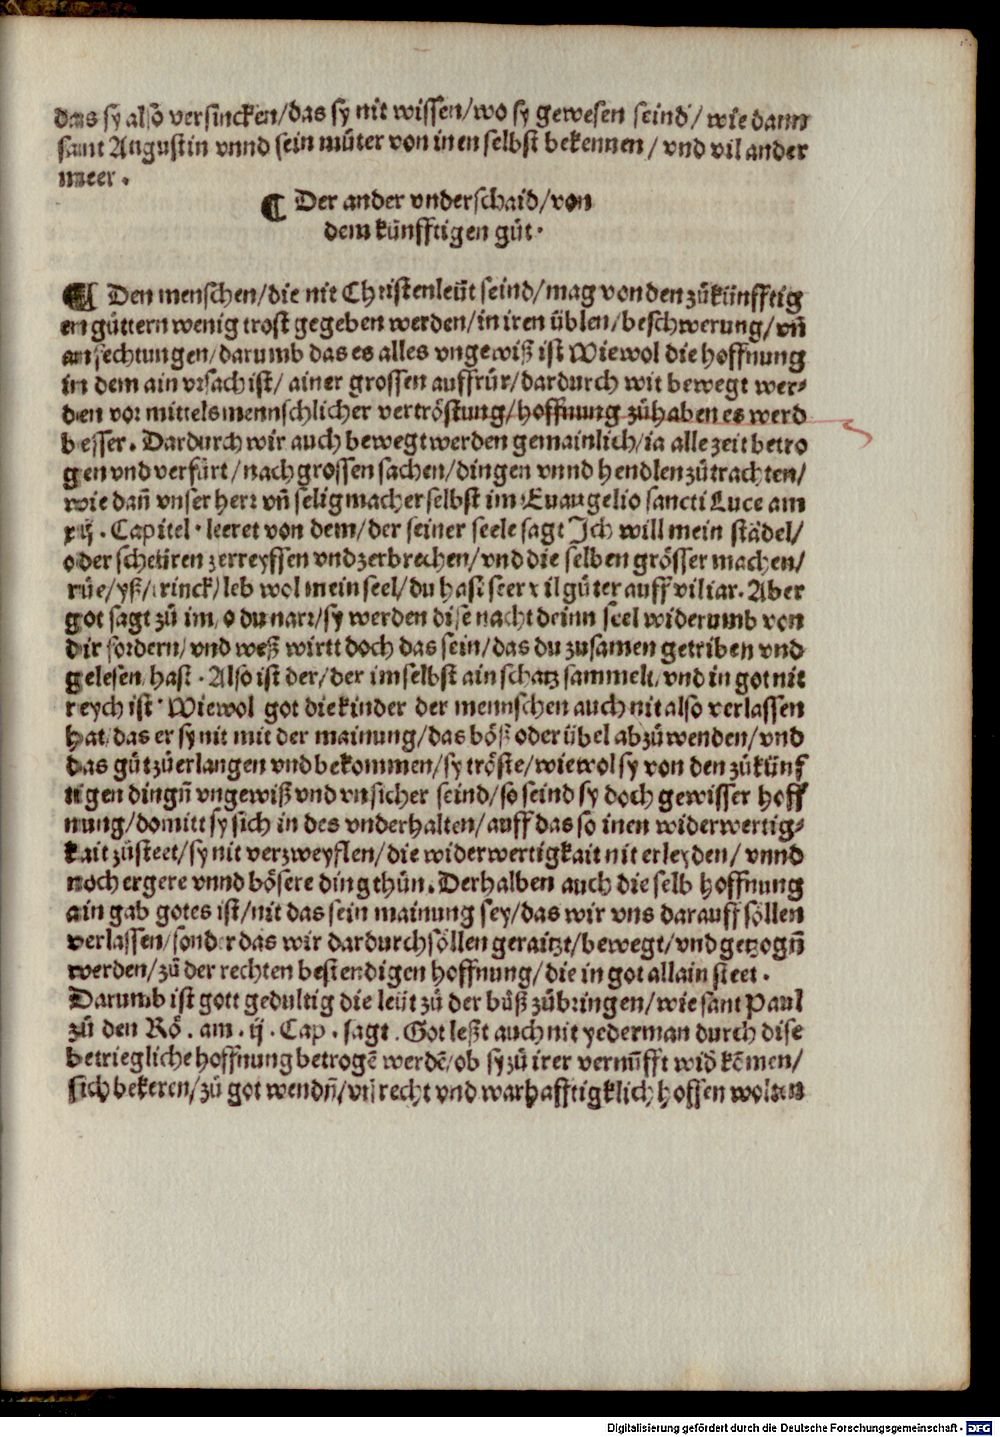 das sy alsō versincken/das sy nit wissen/wo sy gewesen seind/ wie dann
sant Augustin vnnd sein můter von inen selbst bekennen/ vnd vil ander
meer.
¶ Der ander vnderschaid/von
dem künfftigen gůt.
¶ Den menschen/die nit Christenleüt seind/mag von den zůkünfftig
en güttern wenig trost gegeben werden/in iren üblen/beschwerung/vñ
anfechtungen/darumb das es alles vngewiß ist Wiewol die hoffnung
in dem ain vrsach ist/ ainer grossen auffrůr/dardurch wit bewegt wer⸗
den vor mittels mennschlicher vertröstung/hoffnung zůhaben es werd
besser. Dardurch wir auch bewegt werden gemainlich/ia alle zeit betro
gen vnd verfürt/nach grossen sachen/dingen vnnd hendlen zůtrachten/
wie dañ vnser herr vñ seligmacher selbst im Euangelio sancti Luce am
xij. Capitel. leeret von dem/der seiner seele sagt Jch will mein städel/
oder scheüren zerreyssen vnd zerbrechen/vnd die selben grösser machen/
růe/yß/trinck/leb wol mein seel/du hast seer vil güter auff vil iar. Aber
got sagt zů im/o du narr/sy werden dise nacht deinn seel widerumb von
dir fordern/vnd weß wirtt doch das sein/das du zusamen getriben vnd
gelesen hast. Also ist der/der im selbst ain schatz sammelt/vnd in got nit
reych ist. Wiewol got die kinder der mennschen auch nit also verlassen
hat/das er sy nit mit der mainung/das böß oder übel abzůwenden/vnd
das gůt zůerlangen vnd bekommen/sy tröste/wiewol sy von den zůkünf
tigen dingñ vngewiß vnd vnsicher seind/so seind sy doch gewisser hoff
nung/domitt sy sich in des vnderhalten/auff das so inen widerwertig⸗
kait zůsteet/sy nit verzweyflen/die widerwertigkait nit erleyden/ vnnd
noch ergere vnnd bösere ding thůn. Derhalben auch die selb hoffnung
ain gab gotes ist/nit das sein mainung sey/das wir vns darauff söllen
verlassen/sonder das wir dardurch söllen geraitzt/bewegt/vnd getzogñ
werden/zů der rechten bestendigen hoffnung/die in got allain steet.
Darumb ist gott gedultig die leüt zů der bůß zůbringen/wie sant Paul
zů den Rö. am. ij. Cap. sagt. Got leßt auch nit yederman durch dise
betriegliche hoffnung betrogē werdē/ob sy zů irer vernũfft wid̄ kōmen/
sich bekeren/zů got wendñ/vñ recht vnd warhafftigklich hoffen wolten
Digitalisierung gefördert durch die Deutsche Forschungsgemeinschaft - DFG